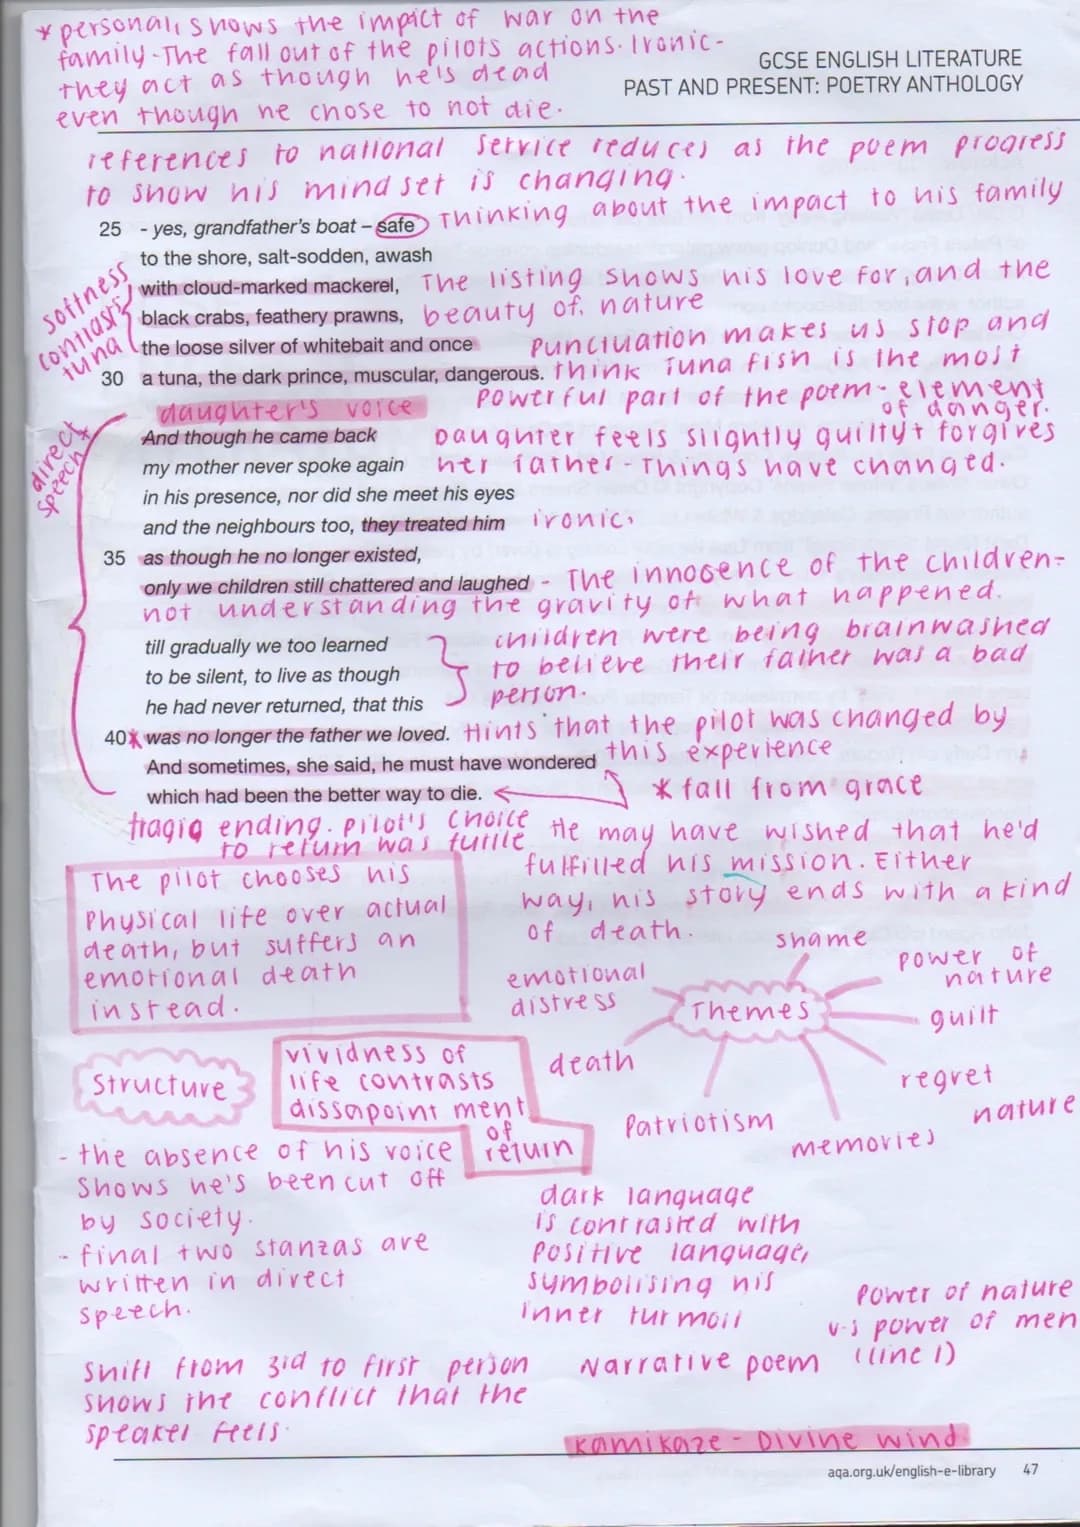 * personal, shows the impact of war on the
family - The fall out of the pilots actions. Ironic -
they act as though he's dead
even though he chose to not die.
GCSE ENGLISH LITERATURE
PAST AND PRESENT: POETRY ANTHOLOGY
references to national service reduces as the poem progress
to show his mind set is changing.
25 - yes, grandfather's boat – safe Thinking about the impact to his family
to the shore, salt-sodden, awash
with cloud-marked mackerel, The listing shows his love for, and the
black crabs, feathery prawns, beauty of, nature
softness contrasts tuna
the loose silver of whitebait and once Punctuation makes us stop and
30 a tuna, the dark prince, muscular, dangerous. think Tuna fish is the most
powerful part of the poem - element
of danger.
daughter's voice
direct speech *
And though he came back Daughter feels slightly guilty + forgives
my mother never spoke again her father - Things have changed.
in his presence, nor did she meet his eyes
and the neighbours too, they treated him ironic,
35 as though he no longer existed,
only we children still chattered and laughed - The innocence of the children-
not understanding the gravity of what happened.
till gradually we too learned children were being brainwashed
to be silent, to live as though to believe their father was a bad
he had never returned, that this person.
40 * was no longer the father we loved. Hints that the pilot was changed by
this experience
And sometimes, she said, he must have wondered
which had been the better way to die. * fall from grace
tragic ending. pilot's choice
to return was futile
He may have wished that he'd
fulfilled his mission. Either
way, his story ends with a kind
of death.
The pilot chooses his
Physical life over actual
death, but suffers an
emotional death
instead.
Themes
shame
power of
nature
guilt
regret
nature
memories
Patriotism
death
emotional
distress
Structure
vividness of
life contrasts
dissapointment
of
return
- the absence of his voice
shows he's been cut off
by society.
- final two stanzas are
written in direct
speech.
dark language
is contrasted with
positive language,
symbolising his
inner turmoil
Power of nature
v.s power of men
(line 1)
Shift from 3rd to first person
shows the conflict that the
speaker feels.
Narrative poem
Kamikaze - Divine wind
aqa.org.uk/english-e-library 47